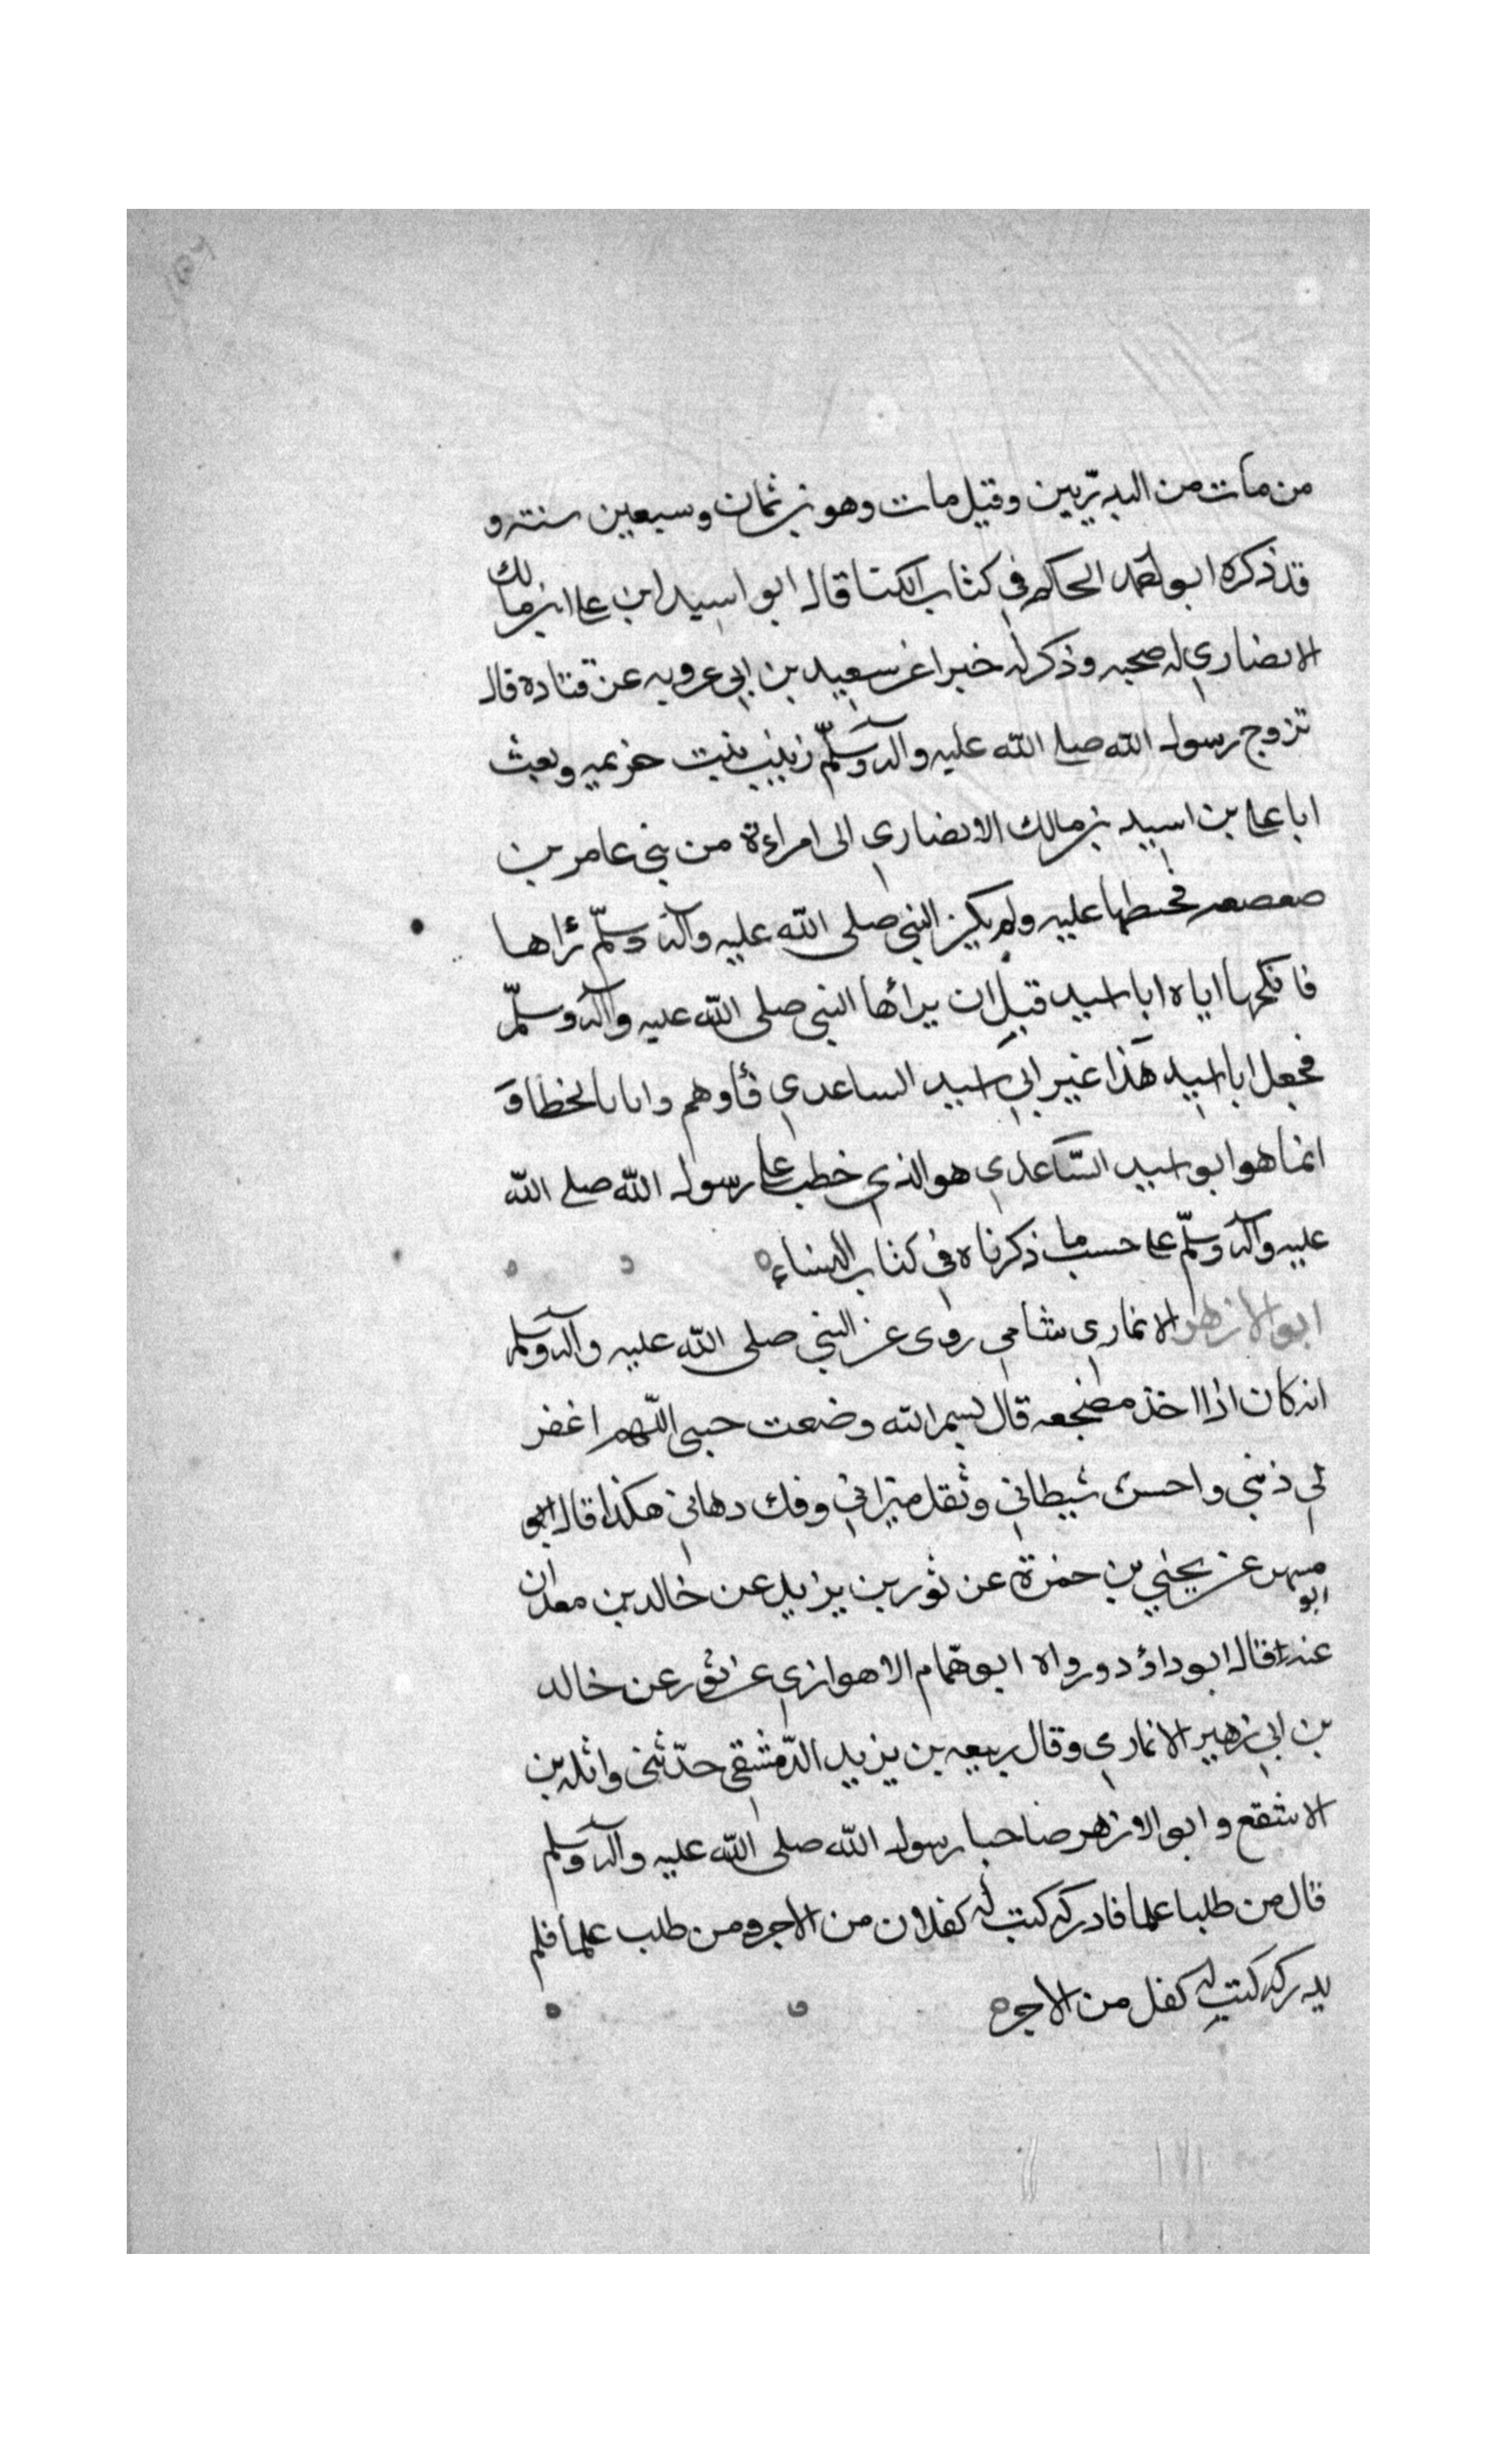 من مات من البدريين وقيل مات وهو بن ثمان وسبعين سنة و
قد ذكره ابو احمد الحاكم في كتاب الكنا قال ابو اسيد ابن على ابن مالك
الانصاري له صحبه وذكر له خبرا عن سعيد بن ابي عروبه عن قتاده قال
تزوج رسول الله صلى الله عليه وآله وسلّم زينب بنت خزيمه وبعث
ابا على بن اسيد بن مالك الانصاري الى امراءة من بني عامر بن
صعصعه فخطبها عليه ولم يكن النبي صلى الله عليه وآله وسلّم رٔاها
فانكحها اياه ابا اسيد قبل ان يرأها النبي صلى الله عليه وآله وسلّم
فجعل ابا اسيد هذا غير ابي اسيد الساعدي فأوهم واتا بالخطا و
انما هو ابو اسيد السّاعدي هو الذي خطب على رسول الله صلى الله
عليه وآله وسلّم على حسب ما ذكرناه في كتاب النساء ه
ابو الازهر الانماري شامي روى عن النبي صلى الله عليه وآله وسلم
انه كان اذا اخذ مضجعه قال بسم الله وضعت جبني اللّهم اغفر
لي ذنبي واحسئ شيطاني وثقل ميزاني وفك دهاني هكذا قال ابو
مسهر عن يحيي بن حمزة عن ثور بن يزيد عن خالد بن معدان
ابو
عنه قال ابو داؤد ورواه ابو همّام الاهوازي عن ثور عن خالد
بن ابي زهير الانماري وقال ربيعه بن يزيد الدّمشقي حدّثني واثله بن
الاشقع وابو الازهر صاحبا رسول الله صلى الله عليه وآله وسلم
قال من طلبا علما فادركه كتب له كفلان من الاجر ومن طلب علما فلم
يدركه كتب له كفل من الاجر ه